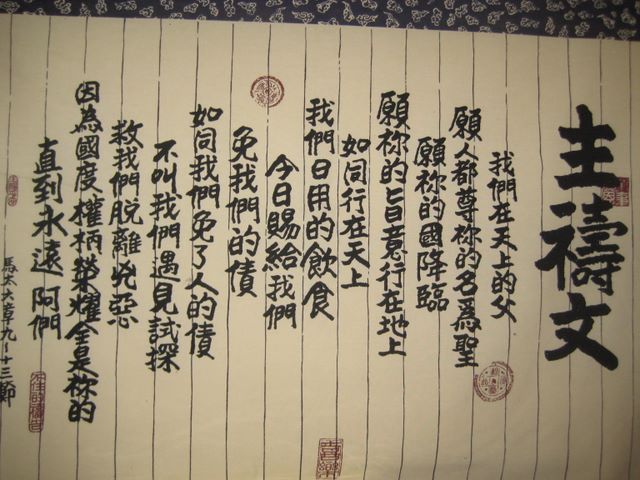 主禱文
我們在天上的父
願人都尊祢的名爲聖
願祢的國降臨
願祢的旨意行在地上
如同行在天上
我們日用的飲食
今日賜給我們
免我們的債
如同我們免了人的債
不叫我們遇見試探
救我們脫離兇惡
因為國度權柄榮耀全是祢的
直到永遠阿們
馬太六章九~十三節
喜樂